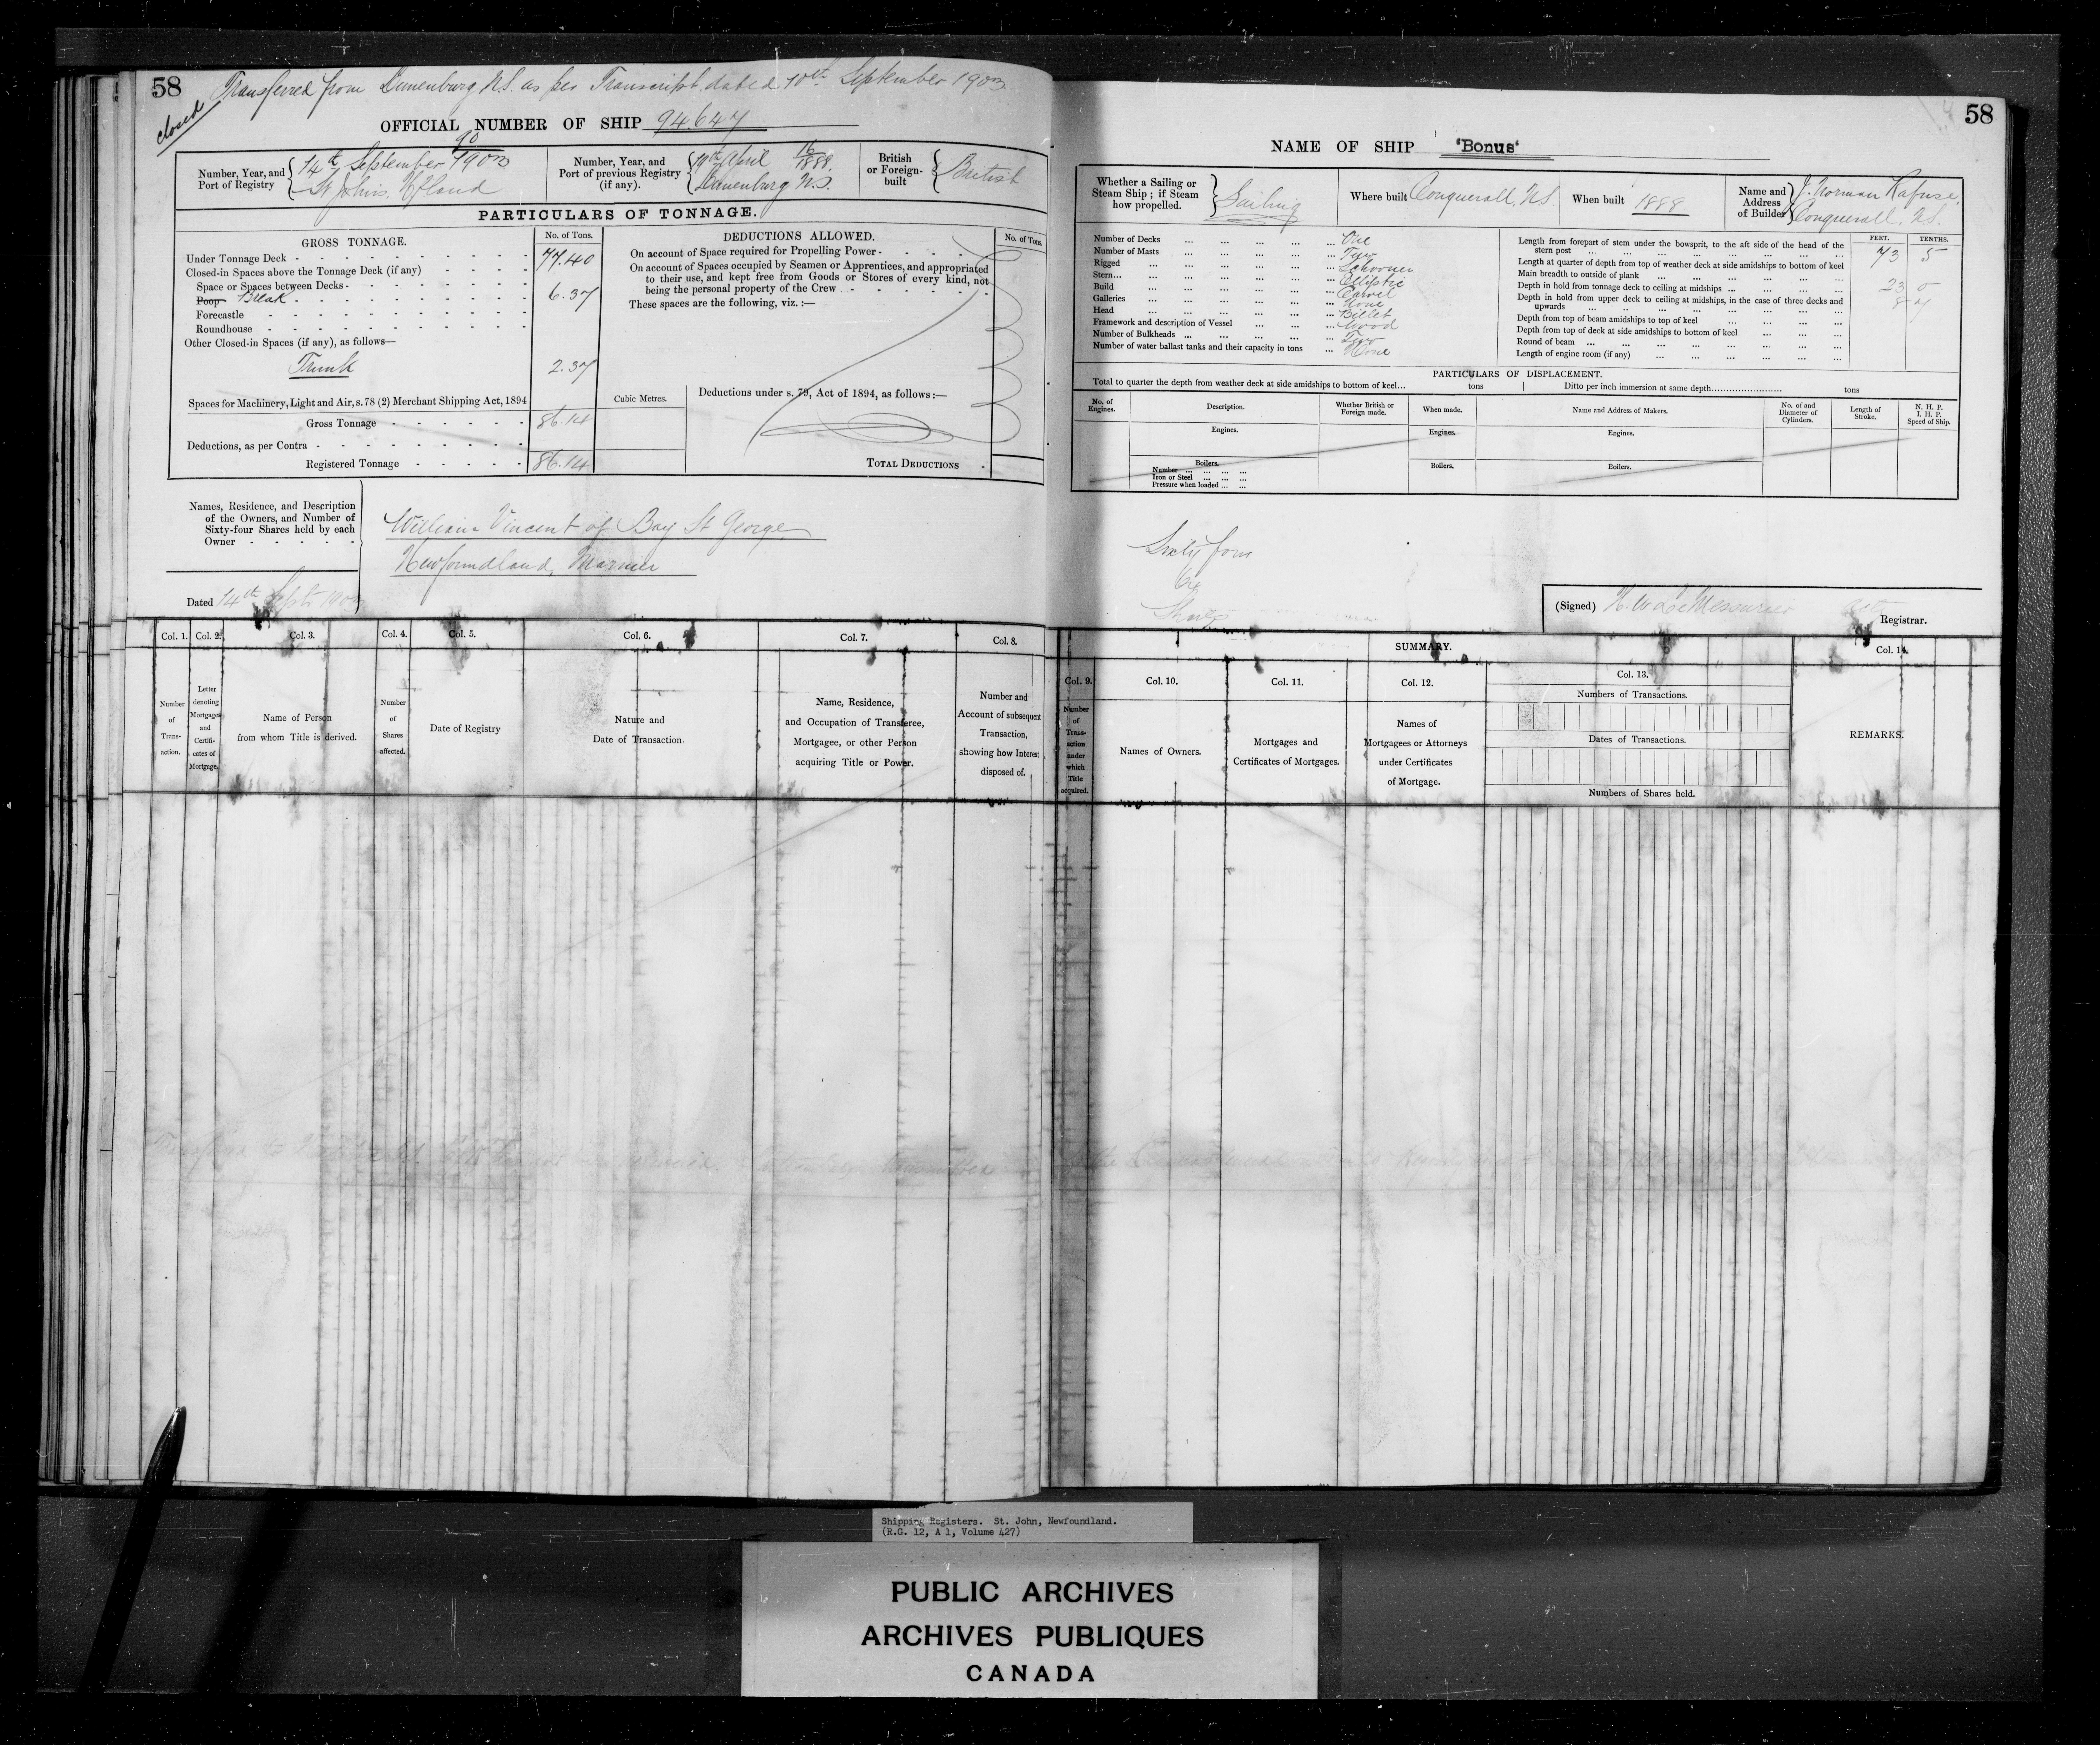 58
Transferred from Lunenburg N.S. as per Transcript dated 10th September 1903
closed
OFFICIAL NUMBER OF SHIP 94647
Number, Year, and
Port of Registry
90
14th September 1903
St John's. Nfland
Number, Year, and
Port of previous Registry
(if any).
April 16/1888.
Lunenburg N.S.
British
or Foreign-
built
British
PARTICULARS OF TONNAGE.
GROSS TONNAGE.
No. of Tons.
Under Tonnage Deck 77.40
Closed-in Spaces above the Tonnage Deck (if any)
Space or Spaces between Decks
Poop Break 6.37
Forecastle
Roundhouse
Other Closed-in Spaces (if any), as follows—
Trunk 2.37
Spaces for Machinery, Light and Air, s. 78 (2) Merchant Shipping Act, 1894
Gross Tonnage 86.14
Deductions, as per Contra
Registered Tonnage 86.14
Cubic Metres.
DEDUCTIONS ALLOWED.
No. of Tons.
On account of Space required for Propelling Power
On account of Spaces occupied by Seamen or Apprentices, and appropriated
to their use, and kept free from Goods or Stores of every kind, not
being the personal property of the Crew
These spaces are the following, viz. :—
Deductions under s. 79, Act of 1894, as follows :—
TOTAL DEDUCTIONS
Names, Residence, and Description
of the Owners, and Number of
Sixty-four Shares held by each
Owner
William Vincent of Bay St George
Newfoundland, Mariner
Dated 14th Septr 1903
Col. 1.
Col. 2.
Col. 3.
Col. 4.
Col. 5.
Col. 6.
Col. 7.
Col. 8.
Number
of
Trans-
action.
Letter
denoting
Mortgages
and
Certifi-
cates of
Mortgage.
Name of Person
from whom Title is derived.
Number
of
Shares
affected.
Date of Registry
Nature and
Date of Transaction
Name, Residence,
and Occupation of Transferee,
Mortgagee, or other Person
acquiring Title or Power.
Number and
Account of subsequent
Transaction,
showing how Interest
disposed of.
58
NAME OF SHIP 'Bonus'
Whether a Sailing or
Steam Ship ; if Steam
how propelled.
Sailing
Where built Conquerall, N.S.
When built 1888
Name and
Address
of Builder
J. Norman Rafuse,
Conquerall, N.S.
Number of Decks One
Number of Masts Two
Rigged Schooner
Stern Elliptic
Build Carvel
Galleries None
Head Billet
Framework and description of Vessel Wood
Number of Bulkheads Two
Number of water ballast tanks and their capacity in tons None
FEET. TENTHS.
Length from forepart of stem under the bowsprit, to the aft side of the head of the
stern post 73 5
Length at quarter of depth from top of weather deck at side amidships to bottom of keel
Main breadth to outside of plank 23 0
Depth in hold from tonnage deck to ceiling at midships 8 7
Depth in hold from upper deck to ceiling at midships, in the case of three decks and
upwards
Depth from top of beam amidships to top of keel
Depth from top of deck at side amidships to bottom of keel
Round of beam
Length of engine room (if any)
PARTICULARS OF DISPLACEMENT.
Total to quarter the depth from weather deck at side amidships to bottom of keel... tons
Ditto per inch immersion at same depth tons
No. of
Engines.
Description.
Whether British or
Foreign made.
When made.
Name and Address of Makers.
No. of and
Diameter of
Cylinders.
Length of
Stroke.
N. H. P.
I. H. P.
Speed of Ship.
Engines.
Engines.
Engines.
Boilers.
Number
Iron or Steel
Pressure when loaded
Boilers.
Boilers.
Sixty four
64
Shares
(Signed) H. W. LeMessurier
Registrar.
SUMMARY.
Col. 9.
Col. 10.
Col. 11.
Col. 12.
Col. 13.
Col. 14.
Number
of
Trans-
action
under
which
Title
acquired.
Names of Owners.
Mortgages and
Certificates of Mortgages.
Names of
Mortgagees or Attorneys
under Certificates
of Mortgage.
Numbers of Transactions.
Dates of Transactions.
Numbers of Shares held.
REMARKS.
Shipping Registers. St. John, Newfoundland.
(R.G. 12, A 1, Volume 427)
PUBLIC ARCHIVES
ARCHIVES PUBLIQUES
CANADA